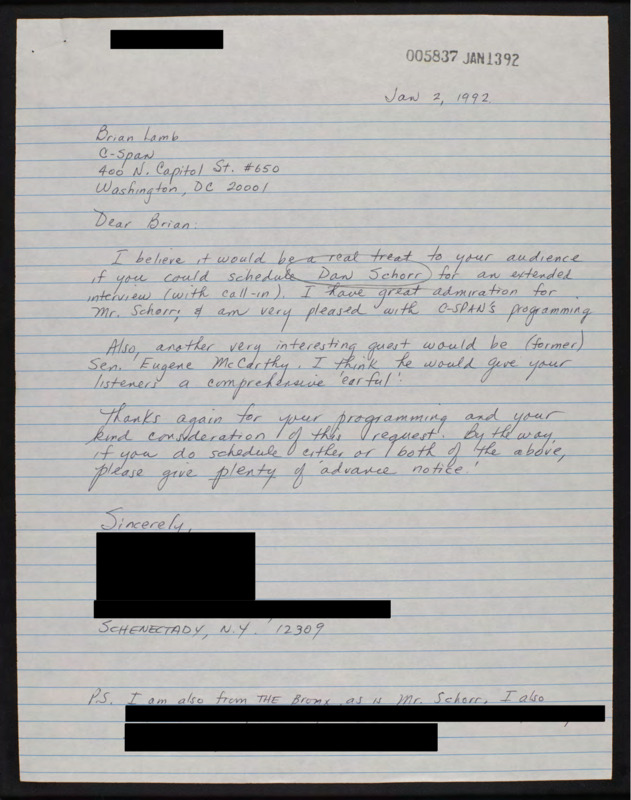 005837 JAN1392
Jan 2, 1992
Brian Lamb
C-Span
400 N. Capitol St. #650
Washington, DC 20001
Dear Brian:
I believe it would be a real treat to your audience
if you could schedule Dan Schorr for an extended
interview (with call-in). I have great admiration for
Mr. Schorr; & am very pleased with C-SPAN's programming
Also, another very interesting guest would be (former)
Sen. Eugene McCarthy. I think he would give your
listeners a comprehensive 'earful'.
Thanks again for your programming and your
kind consideration of this request. By the way,
if you do schedule either or both of the above,
please give plenty of 'advance notice.'
Sincerely,
SCHENECTADY, N.Y. 12309
P.S. I am also from THE Bronx, as is Mr. Schorr. I also